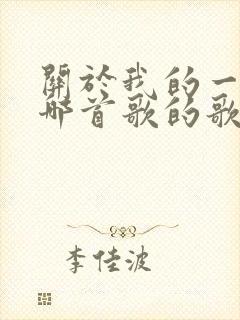 關於我的一
哪首歌的歌
李佳波